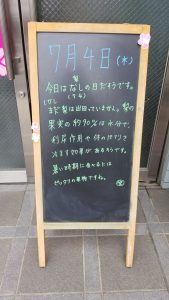 7月4日(木)
梨
今日はなしの日だそうです。
(7 4)
しかし
まだ梨は出回っていません。梨の
果実の約90%は水分で、
利尿作用や体のほてりを
冷ます効果があるそうです。
暑い時期に食べるには
ピッタリの果物ですね。